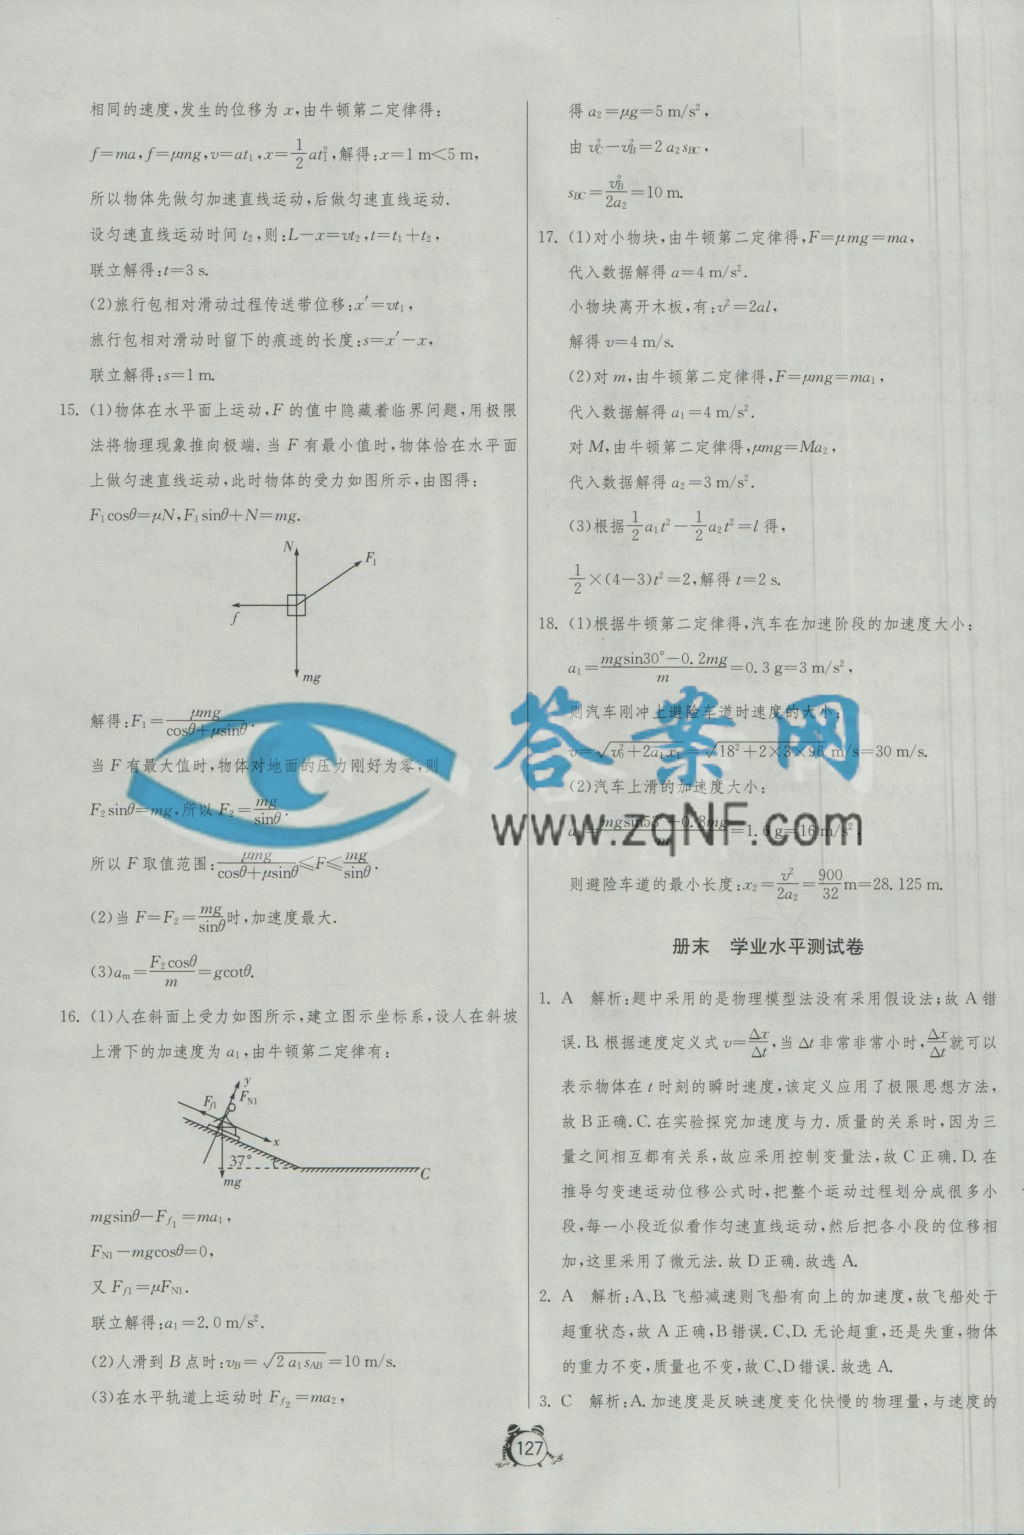 相同的速度,发生的位移为 x,由牛顿第二定律得:
f=ma,f=μmg,v=at₁,x=1/2at₁²,解得:x=1 m<5 m,
所以物体先做匀加速直线运动,后做匀速直线运动.
设匀速直线运动时间 t₂,则:L-x=vt₂,t=t₁+t₂,
联立解得:t=3 s.
(2)旅行包相对滑动过程传送带位移:x′=vt₁,
旅行包相对滑动时留下的痕迹的长度:s=x′-x,
联立解得:s=1 m.
15. (1)物体在水平面上运动,F 的值中隐藏着临界问题,用极限
法将物理现象推向极端.当 F 有最小值时,物体恰在水平面
上做匀速直线运动,此时物体的受力如图所示,由图得:
F₁cosθ=μN,F₁sinθ+N=mg.
N
F₁
f
mg
解得:F₁=μmg/(cosθ+μsinθ).
当 F 有最大值时,物体对地面的压力刚好为零,则
F₂sinθ=mg,所以 F₂=mg/sinθ.
所以 F 取值范围:μmg/(cosθ+μsinθ)≤F≤mg/sinθ.
(2)当 F=F₂=mg/sinθ时,加速度最大.
(3)aₘ=F₂cosθ/m=gcotθ.
16. (1)人在斜面上受力如图所示,建立图示坐标系,设人在斜坡
上滑下的加速度为 a₁,由牛顿第二定律有:
y
Ff1
FN1
x
37°
mg
C
mgsinθ-Ff₁=ma₁,
FN1-mgcosθ=0,
又 Ff1=μFN1.
联立解得:a₁=2.0 m/s².
(2)人滑到 B 点时:vB=√(2a₁sAB)=10 m/s.
(3)在水平轨道上运动时 Ff₂=ma₂,
得 a₂=μg=5 m/s²,
由 vC²-vB²=2 a₂sBC,
sBC=vB²/2a₂=10 m.
17. (1)对小物块,由牛顿第二定律得,F=μmg=ma,
代入数据解得 a=4 m/s².
小物块离开木板,有:v²=2al,
解得 v=4 m/s.
(2)对 m,由牛顿第二定律得,F=μmg=ma₁,
代入数据解得 a₁=4 m/s².
对 M,由牛顿第二定律得,μmg=Ma₂,
代入数据解得 a₂=3 m/s².
(3)根据1/2a₁t²-1/2a₂t²=l 得,
1/2×(4-3)t²=2,解得 t=2 s.
18. (1)根据牛顿第二定律得,汽车在加速阶段的加速度大小:
a₁=(mgsin30°-0.2mg)/m=0.3 g=3 m/s²,
则汽车刚冲上避险车道时速度的大小:
v=√(v₀²+2a₁x₁)=√(18²+2×3×96) m/s=30 m/s.
(2)汽车上滑的加速度大小:
a₂=(mgsin53°+0.8mg)/m=1.6 g=16 m/s²,
则避险车道的最小长度:x₂=v²/2a₂=900/32 m=28.125 m.
册末 学业水平测试卷
1. A 解析:题中采用的是物理模型法没有采用假设法;故 A 错
误.B.根据速度定义式 v=Δx/Δt,当 Δt 非常非常小时,Δx/Δt就可以
表示物体在 t 时刻的瞬时速度,该定义应用了极限思想方法,
故 B 正确.C.在实验探究加速度与力.质量的关系时,因为三
量之间相互都有关系,故应采用控制变量法,故 C 正确.D.在
推导匀变速运动位移公式时,把整个运动过程划分成很多小
段,每一小段近似看作匀速直线运动,然后把各小段的位移相
加,这里采用了微元法.故 D 正确.故选 A.
2. A 解析:A、B.飞船减速则飞船有向上的加速度,故飞船处于
超重状态,故 A 正确,B 错误.C、D.无论超重,还是失重,物体
的重力不变,质量也不变,故 C、D 错误.故选 A.
3. C 解析:A.加速度是反映速度变化快慢的物理量,与速度的
127
答案网
www.zqNF.com